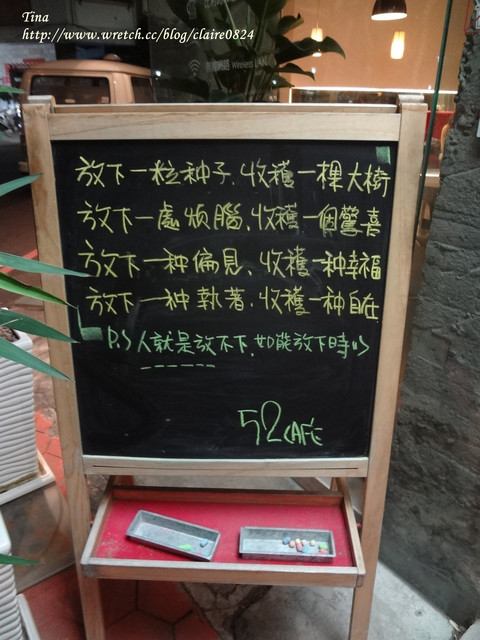 Tina
http://www.wretch.cc/blog/claire0824
Wireless LAN
放下一粒种子.收穫一棵大樹
放下一處煩腦.收穫一個驚喜
放下一种偏見.收穫一种幸福
放下一种執著.收穫一种自在
P.S人就是放不下.如能放下時
52 CAFE